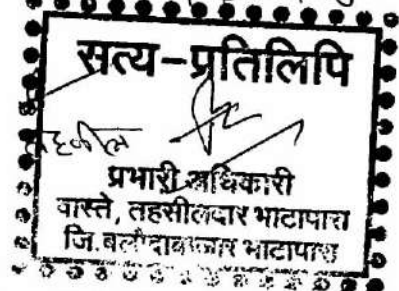 सत्य-प्रतिलिपि
तहसील
प्रभारी अधिकारी
वास्ते, तहसीलदार भाटापारा
जि.बलौदाबाजार भाटापारा